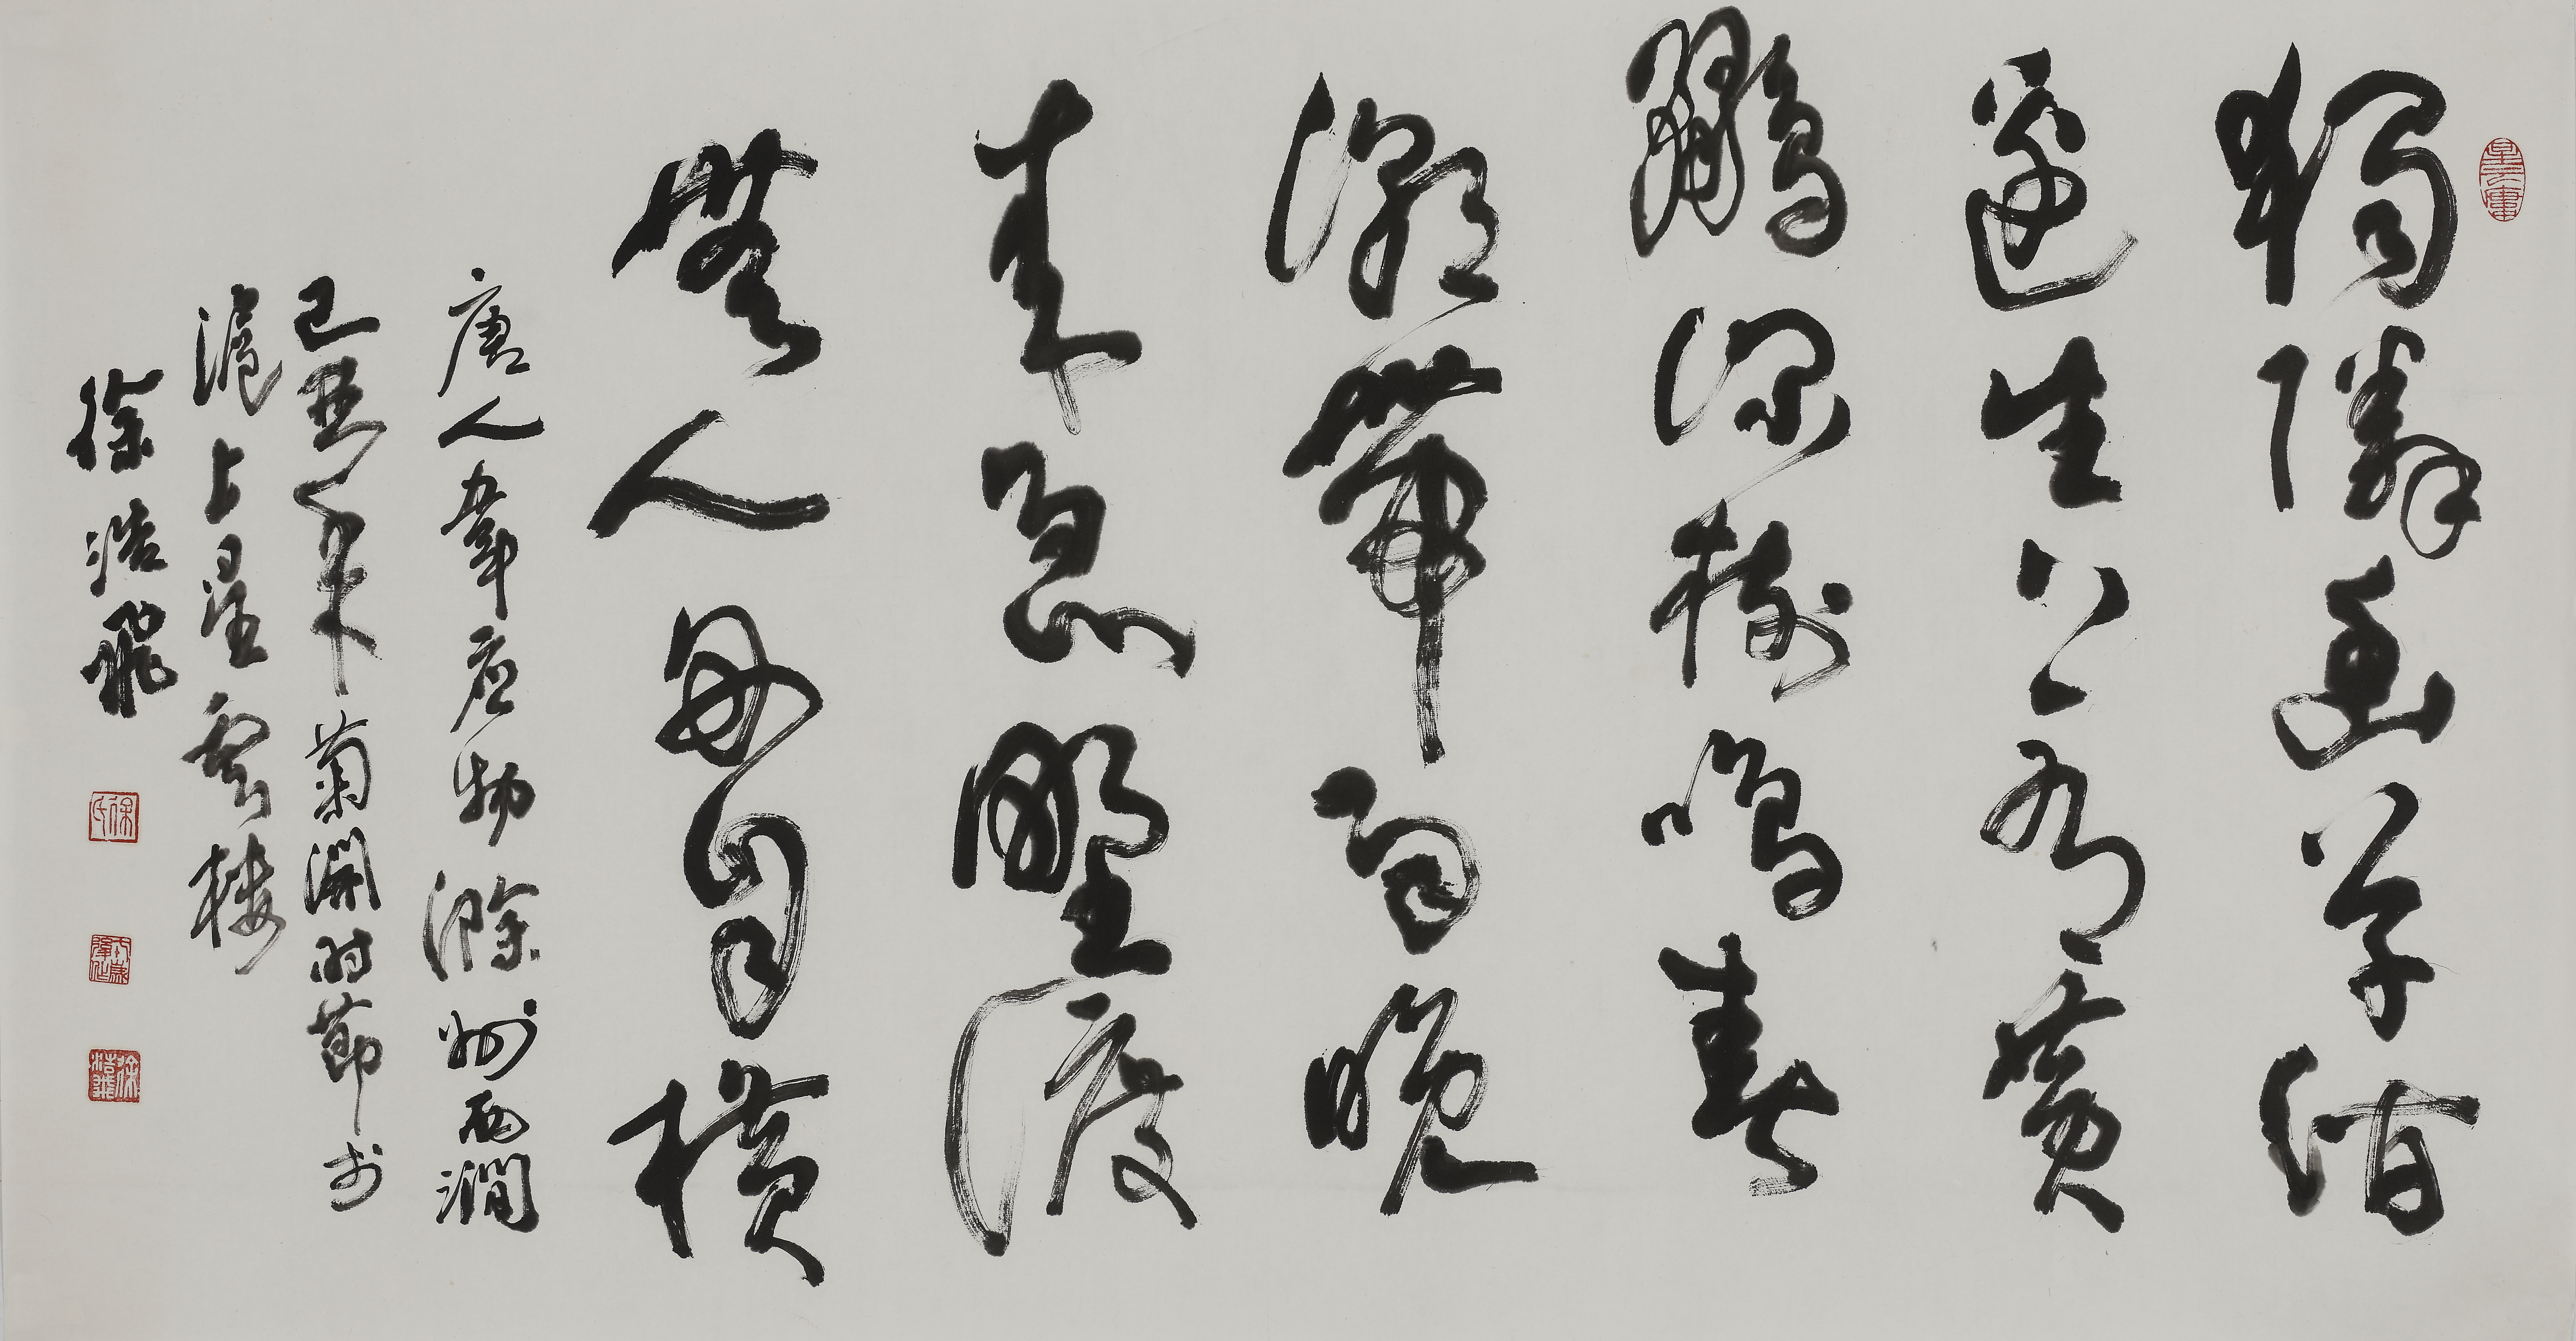 獨憐幽草澗
邊生上有黃
鸝深樹鳴春
潮帶雨晚
來急野渡
無人舟自橫
唐人韋应物滁州西澗
己丑年菊開时節於
滬上星雲樓
徐浩飛
徐氏
徐浩飛